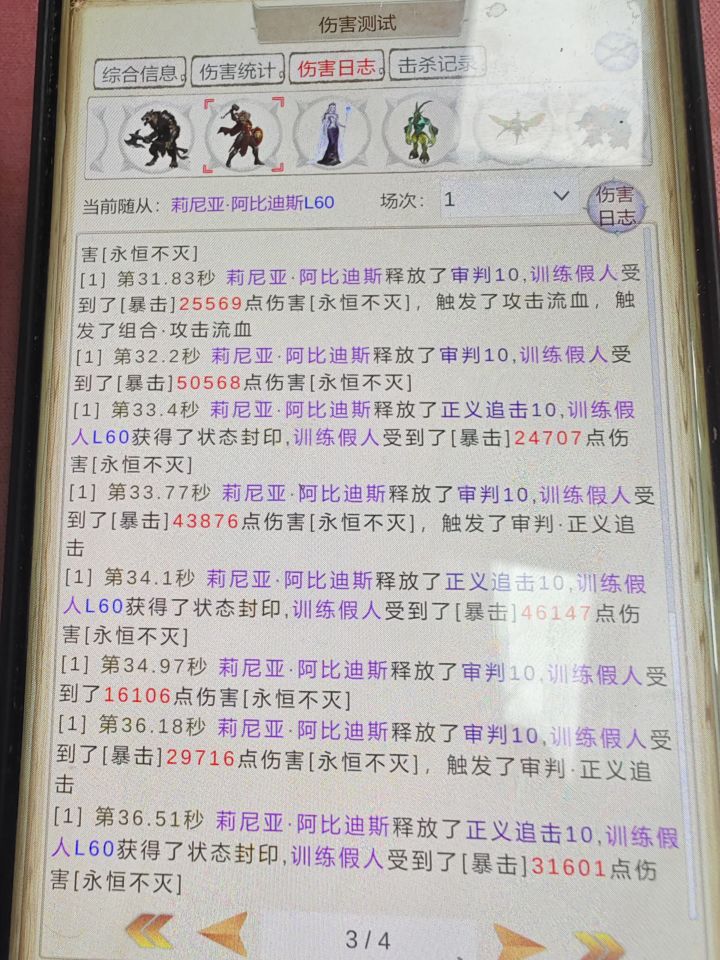 伤害测试
综合信息 伤害统计 伤害日志 击杀记录
当前随从: 莉尼亚·阿比迪斯L60 场次: 1 伤害
日志
害[永恒不灭]
[1] 第31.83秒 莉尼亚·阿比迪斯释放了审判10,训练假人受
到了[暴击]25569点伤害[永恒不灭]，触发了攻击流血，触
发了组合·攻击流血
[1] 第32.2秒 莉尼亚·阿比迪斯释放了审判10,训练假人受
到了[暴击]50568点伤害[永恒不灭]
[1] 第33.4秒 莉尼亚·阿比迪斯释放了正义追击10,训练假
人L60获得了状态封印,训练假人受到了[暴击]24707点伤
害[永恒不灭]
[1] 第33.77秒 莉尼亚·阿比迪斯释放了审判10,训练假人受
到了[暴击]43876点伤害[永恒不灭]，触发了审判·正义追
击
[1] 第34.1秒 莉尼亚·阿比迪斯释放了正义追击10,训练假
人L60获得了状态封印,训练假人受到了[暴击]46147点伤
害[永恒不灭]
[1] 第34.97秒 莉尼亚·阿比迪斯释放了审判10,训练假人受
到了16106点伤害[永恒不灭]
[1] 第36.18秒 莉尼亚·阿比迪斯释放了审判10,训练假人受
到了[暴击]29716点伤害[永恒不灭]，触发了审判·正义追
击
[1] 第36.51秒 莉尼亚·阿比迪斯释放了正义追击10,训练假
人L60获得了状态封印,训练假人受到了[暴击]31601点伤
害[永恒不灭]
3/4